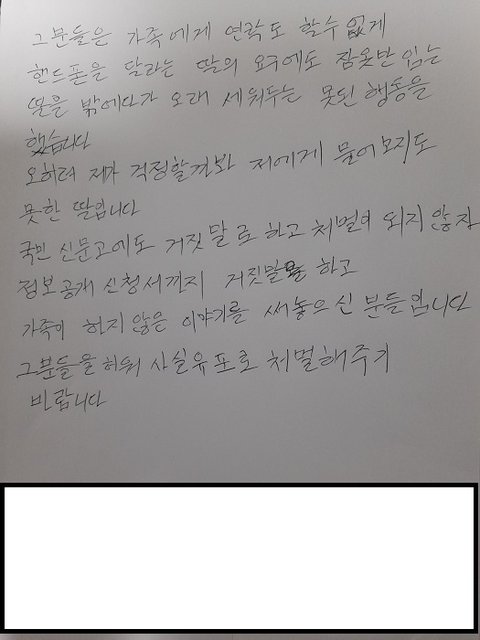 그분들은 가족에게 연락도 할수 없게
핸드폰을 달라는 딸의 요구에도 잠옷만 입는
딸을 밖에다가 오래 세워두는 못된 행동을
했습니다
오히려 제가 걱정할까봐 저에게 물어보지도
못한 딸입니다
국민 신문고에도 거짓말로 하고 처벌이 되지 않자
정보공개 신청서까지 거짓말을 하고
가족이 하지 않은 이야기를 써놓으신 분들입니다
그분들을 허위 사실유포로 처벌해주기
바랍니다